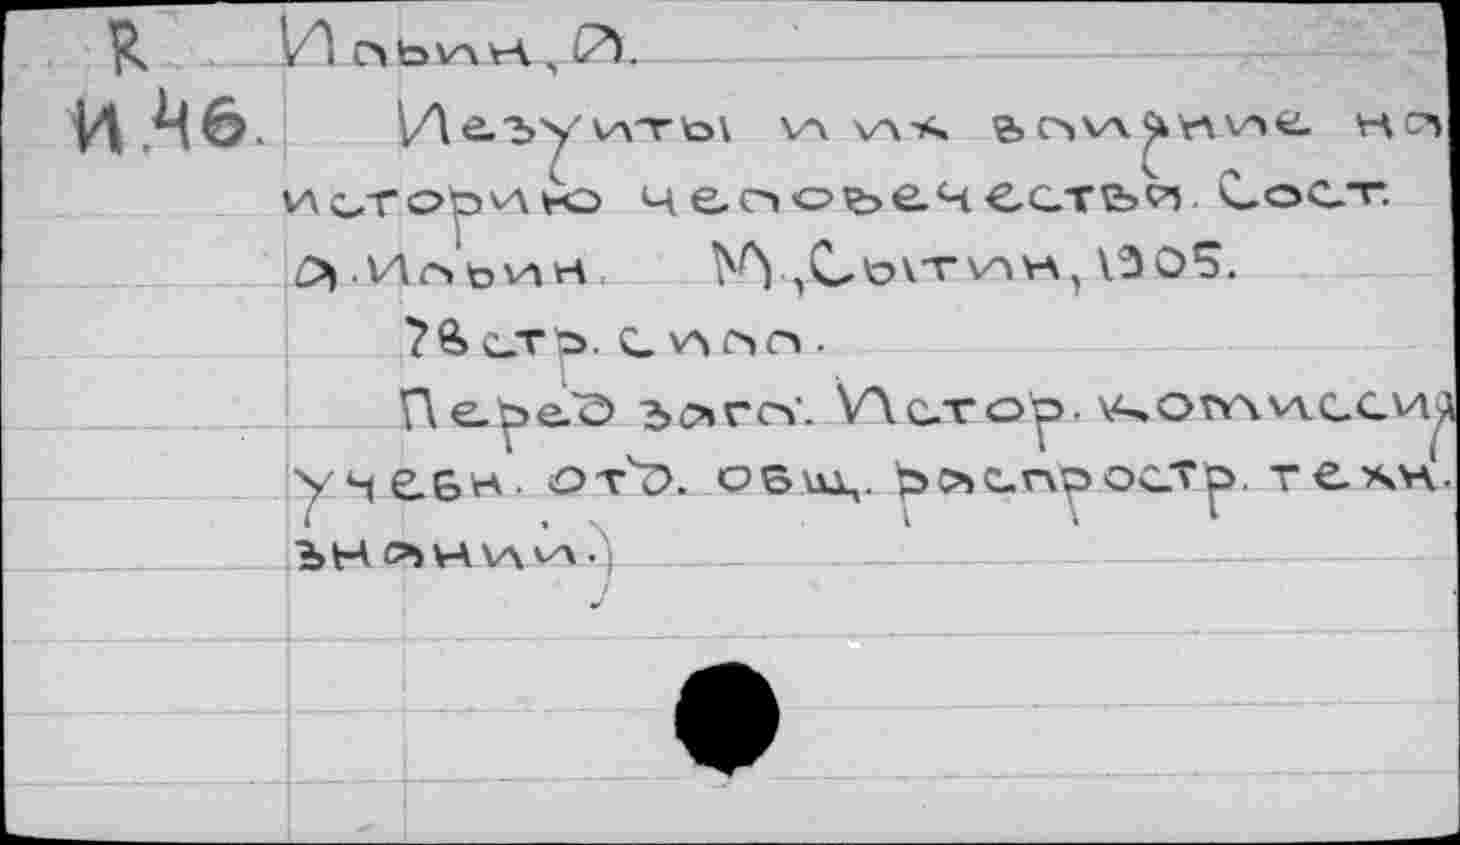 R Ильин, А.
И.46. Иезуиты и их влияние на
историю человечества. Сост.
А. Ильин. М., Сытин, 1905.
?8 стр. с илл.
Перед загл: Истор. комиссия
учебн. отд. общ. распростр. техн.
знании.)